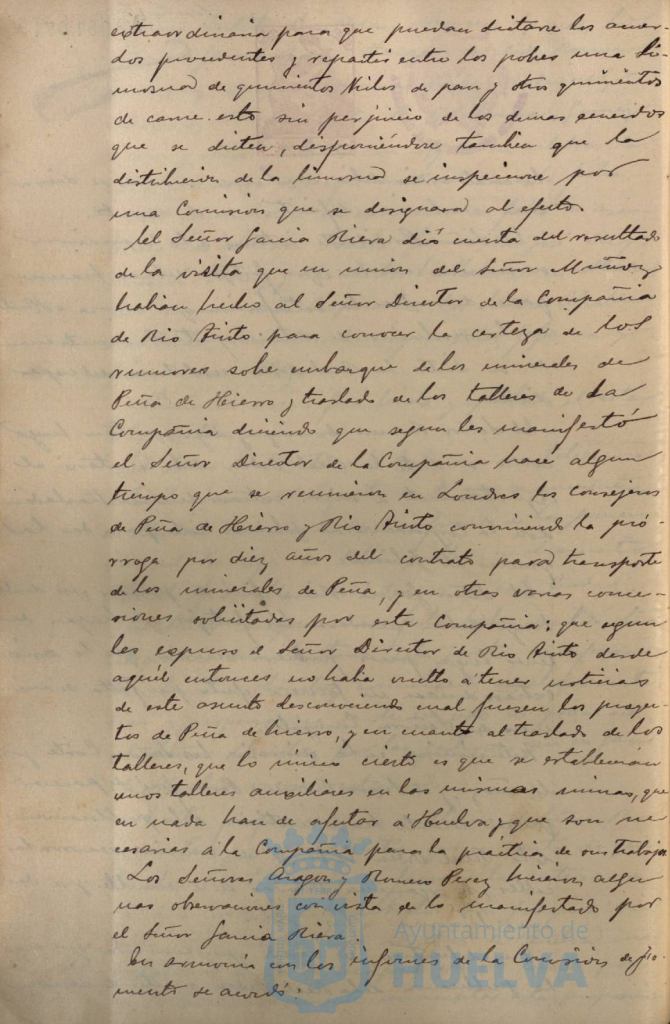 extraordinaria para que puedan dictarse los acuer-
dos procedentes y repartir entre los pobres una li-
mosna de quinientos Kilos de pan y otros quinientos
de carne esto sin perjuicio de los demas acuerdos
que se dicten, disponiéndose tambien que la
distribucion de la limosna se inspecione por
una Comision que se designara al efecto.
El Señor Garcia Riera dió cuenta del resultado
de la visita que en union del Señor Muñoz
habian hecho al Señor Director de la Compañia
de Rio Tinto para conocer la certeza de los
rumores sobe embarque de los minerales de
Peña de Hierro y traslado de los talleres de la
Compañia diciendo que segun les manifestó
el Señor Director de la Compañia hace algun
tiempo que se reunieron en Londres los consejeros
de Peña de Hierro y Rio Tinto conviniendo la pró-
rroga por diez años del contrato para transporte
de los minerales de Peña, y en otras varias conce-
siones solicitadas por esta Compañia; que segun
les expuso el Señor Director de Rio Tinto desde
aquél entonces no habia vuelto a tener noticias
de este asunto desconociendo cual fuesen los proyec-
tos de Peña de hierro, y en cuanto al traslado de los
talleres, que lo único cierto es que se establecerán
unos talleres auxiliares en las mismas minas, que
en nada han de afectar á Huelva y que son ne
cesarias a la Compañia para la práctica de sus trabajos
Los Señores Aragon y Romero Perez hicieron algu
nas observaciones con vista de lo manifestado por
el Señor Garcia Riera.
En armonía con los informes de la Comision de Fo-
mento se acordó:
Ayuntamiento de
HUELVA